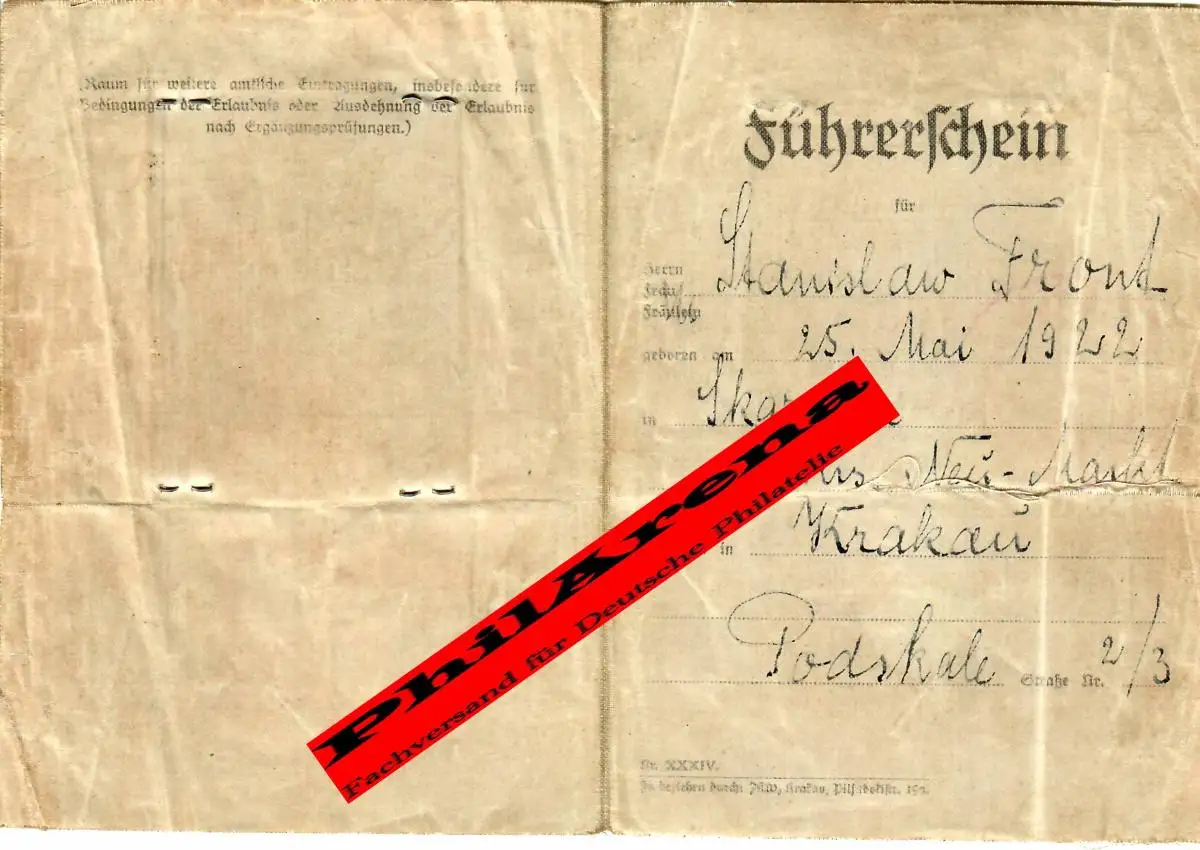 (Raum für weitere amtliche Eintragungen, insbesondere für
Bedingungen der Erlaubnis oder Ausdehnung der Erlaubnis
nach Ergänzungsprüfungen.)
Führerschein
für
Herrn
Frau
Fräulein
Stanislaw Front
geboren am 25. Mai 1922
in
Neu-Markt
in Krakau
Podskale Straße Nr. 2/3
Nr. XXXIV.
Zu beziehen durch: Krakau,
PhilArena
Fachversand für Deutsche Philatelie